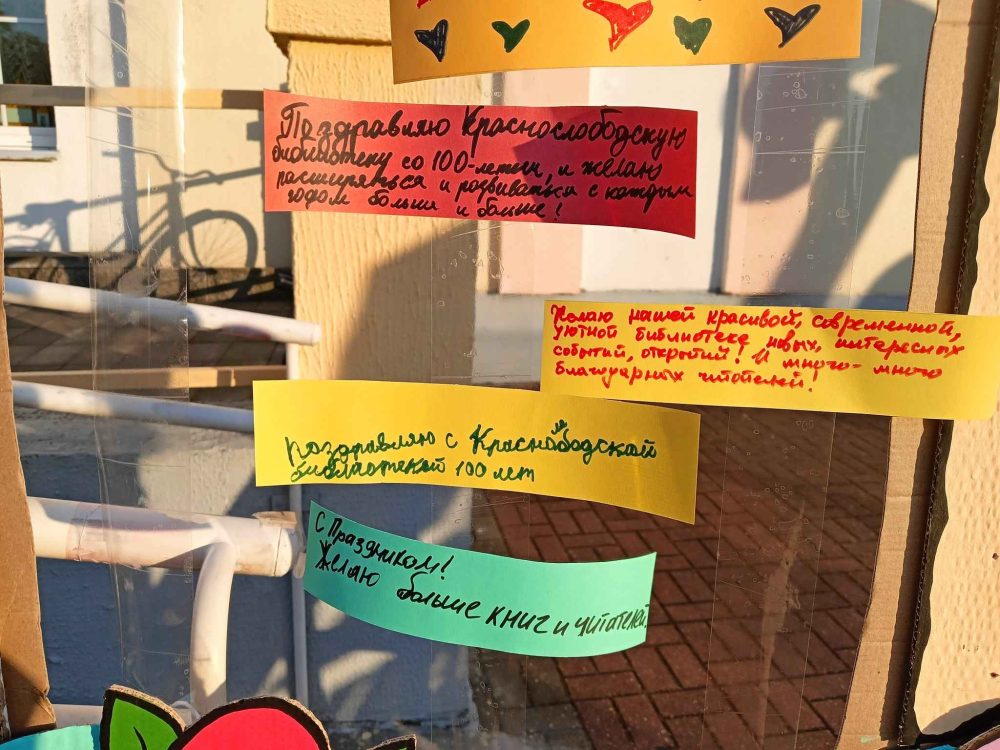 Поздравляю Краснослободскую
библиотеку со 100-летем, и желаю
расширяться и розвиваться с каждым
годом больше и больше!
Желаю нашей красивой, современной,
уютной библиотеке новых, интересных
событий, открытий! И много-много
благодарных читателей!
поздравляю с Краснослободской
библиотекой 100 лет
С Праздником!
Желаю больше книг и читателей